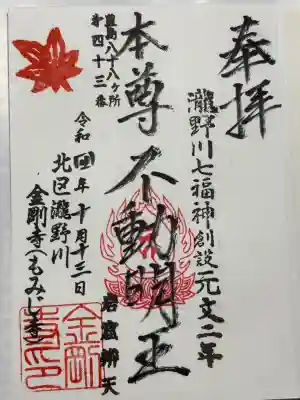 奉拝
瀧野川七福神創設元文二年
本尊不動明王
岩窟弁天
豊島八十八ヶ所
第四十三番
令和四年十月十三日
北区瀧野川
金剛寺(もみじ寺)
金剛
寺印